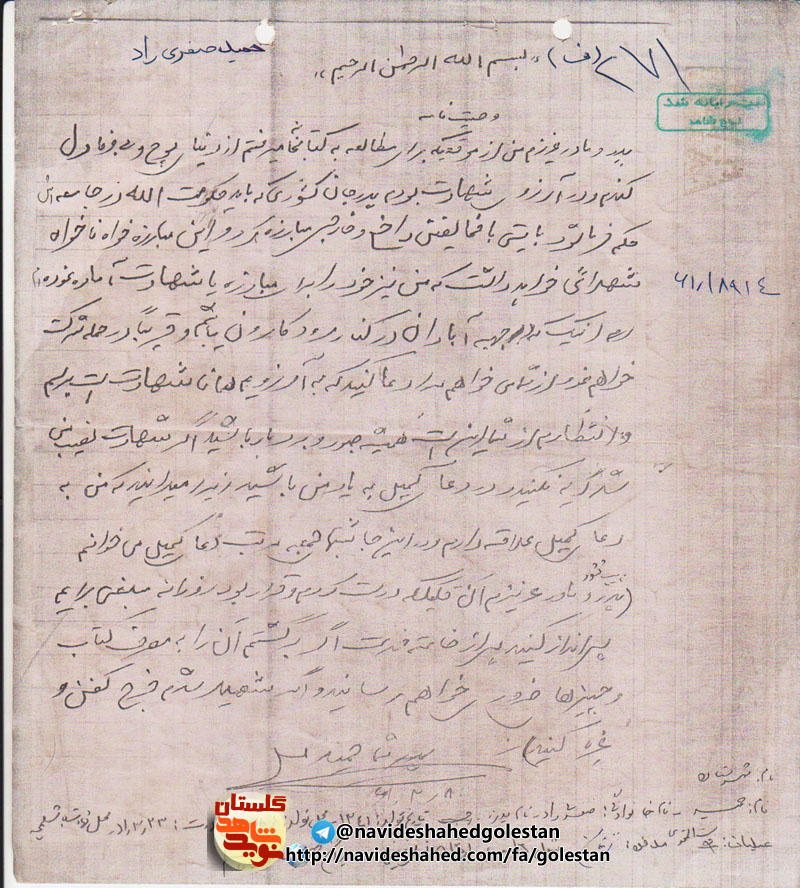 حمید صفری راد
۲۷۱ (ف)
«بسم الله الرحمن الرحیم»
وصیت نامه
پدر و مادر عزیزم من از موقعیکه برای مطالعه به کتابخانه میرفتم از دنیای پوچ و بی وفا دل
کندم و در آرزوی شهادت بودم پدر جان کشوری که باید حکومت الله در جامعه اش
حکم فرما شود بایستی با مخالفینش داخلی و خارجی مبارزه کرد و این مبارزه خواه ناخواه
شهدائی خواهد داشت که من نیز خود را برای مبارزه یا شهادت آماده نموده ام
۶۱/۸۹۱۴
اینک که در جبهه آبادان در کنار رود کارون و قریباً در حمله شرکت
خواهم از شما می خواهم دعا کنید که به آرزویم همانا شهادت است برسم
و انتظارم از شما این است همیشه صبور و بردبار باشید اگر شهادت نصیب من
شد گریه نکنید و در دعای کمیل به یاد من باشید زیرا میدانید که من به
دعای کمیل علاقه دارم و در اینجا شبهای جمعه مرتب دعا کمیل می خوانم
(پدر و مادر عزیزم آن قلکی که درست کردم و قرار بود روزانه مبلغی برایم
پس انداز کنید پس از خاتمه خدمت اگر برگشتم آن را به مصرف کتاب
و چیزها ضروری خواهم رسانید و اگر شهید شدم خرج کفن و
غیره کنید)
پسر شما حمید
نام: حمید نام خانوادگی: صفری راد نام پدر:
گلستان
نوید شاهد
@navideshahedgolestan
http://navideshahed.com/fa/golestan